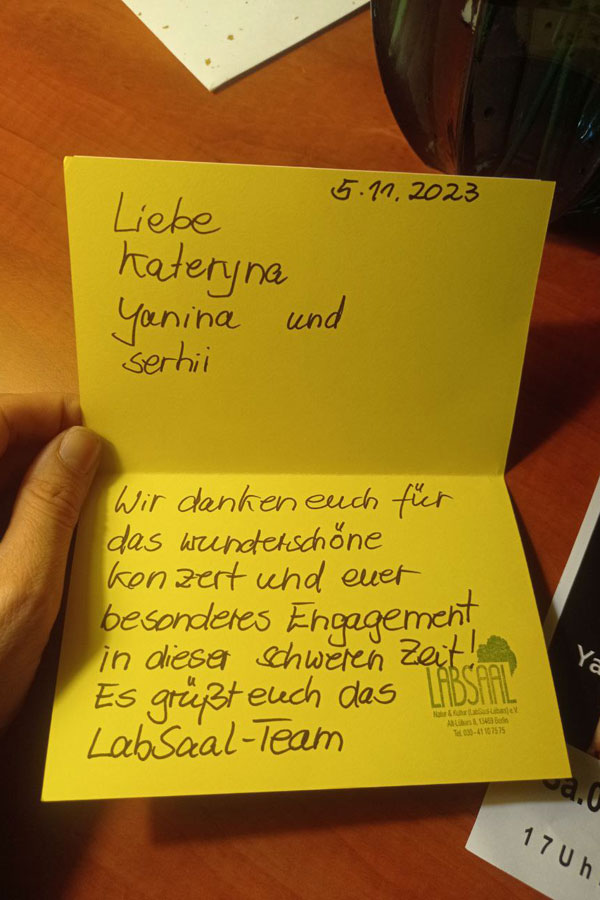 5.11.2023
Liebe
Kateryna
Yanina und
serhii
Wir danken euch für
das wunderschöne
Konzert und euer
besonderes Engagement
in dieser schweren Zeit!
Es grüßt euch das
LabSaal-Team
LABSAAL
Natur & Kultur (LabSaal-Lübars) e.V.
Alt-Lübars 8, 13469 Berlin
Tel. 030 - 41 10 75 75
Ya
Sa.0
17Uh